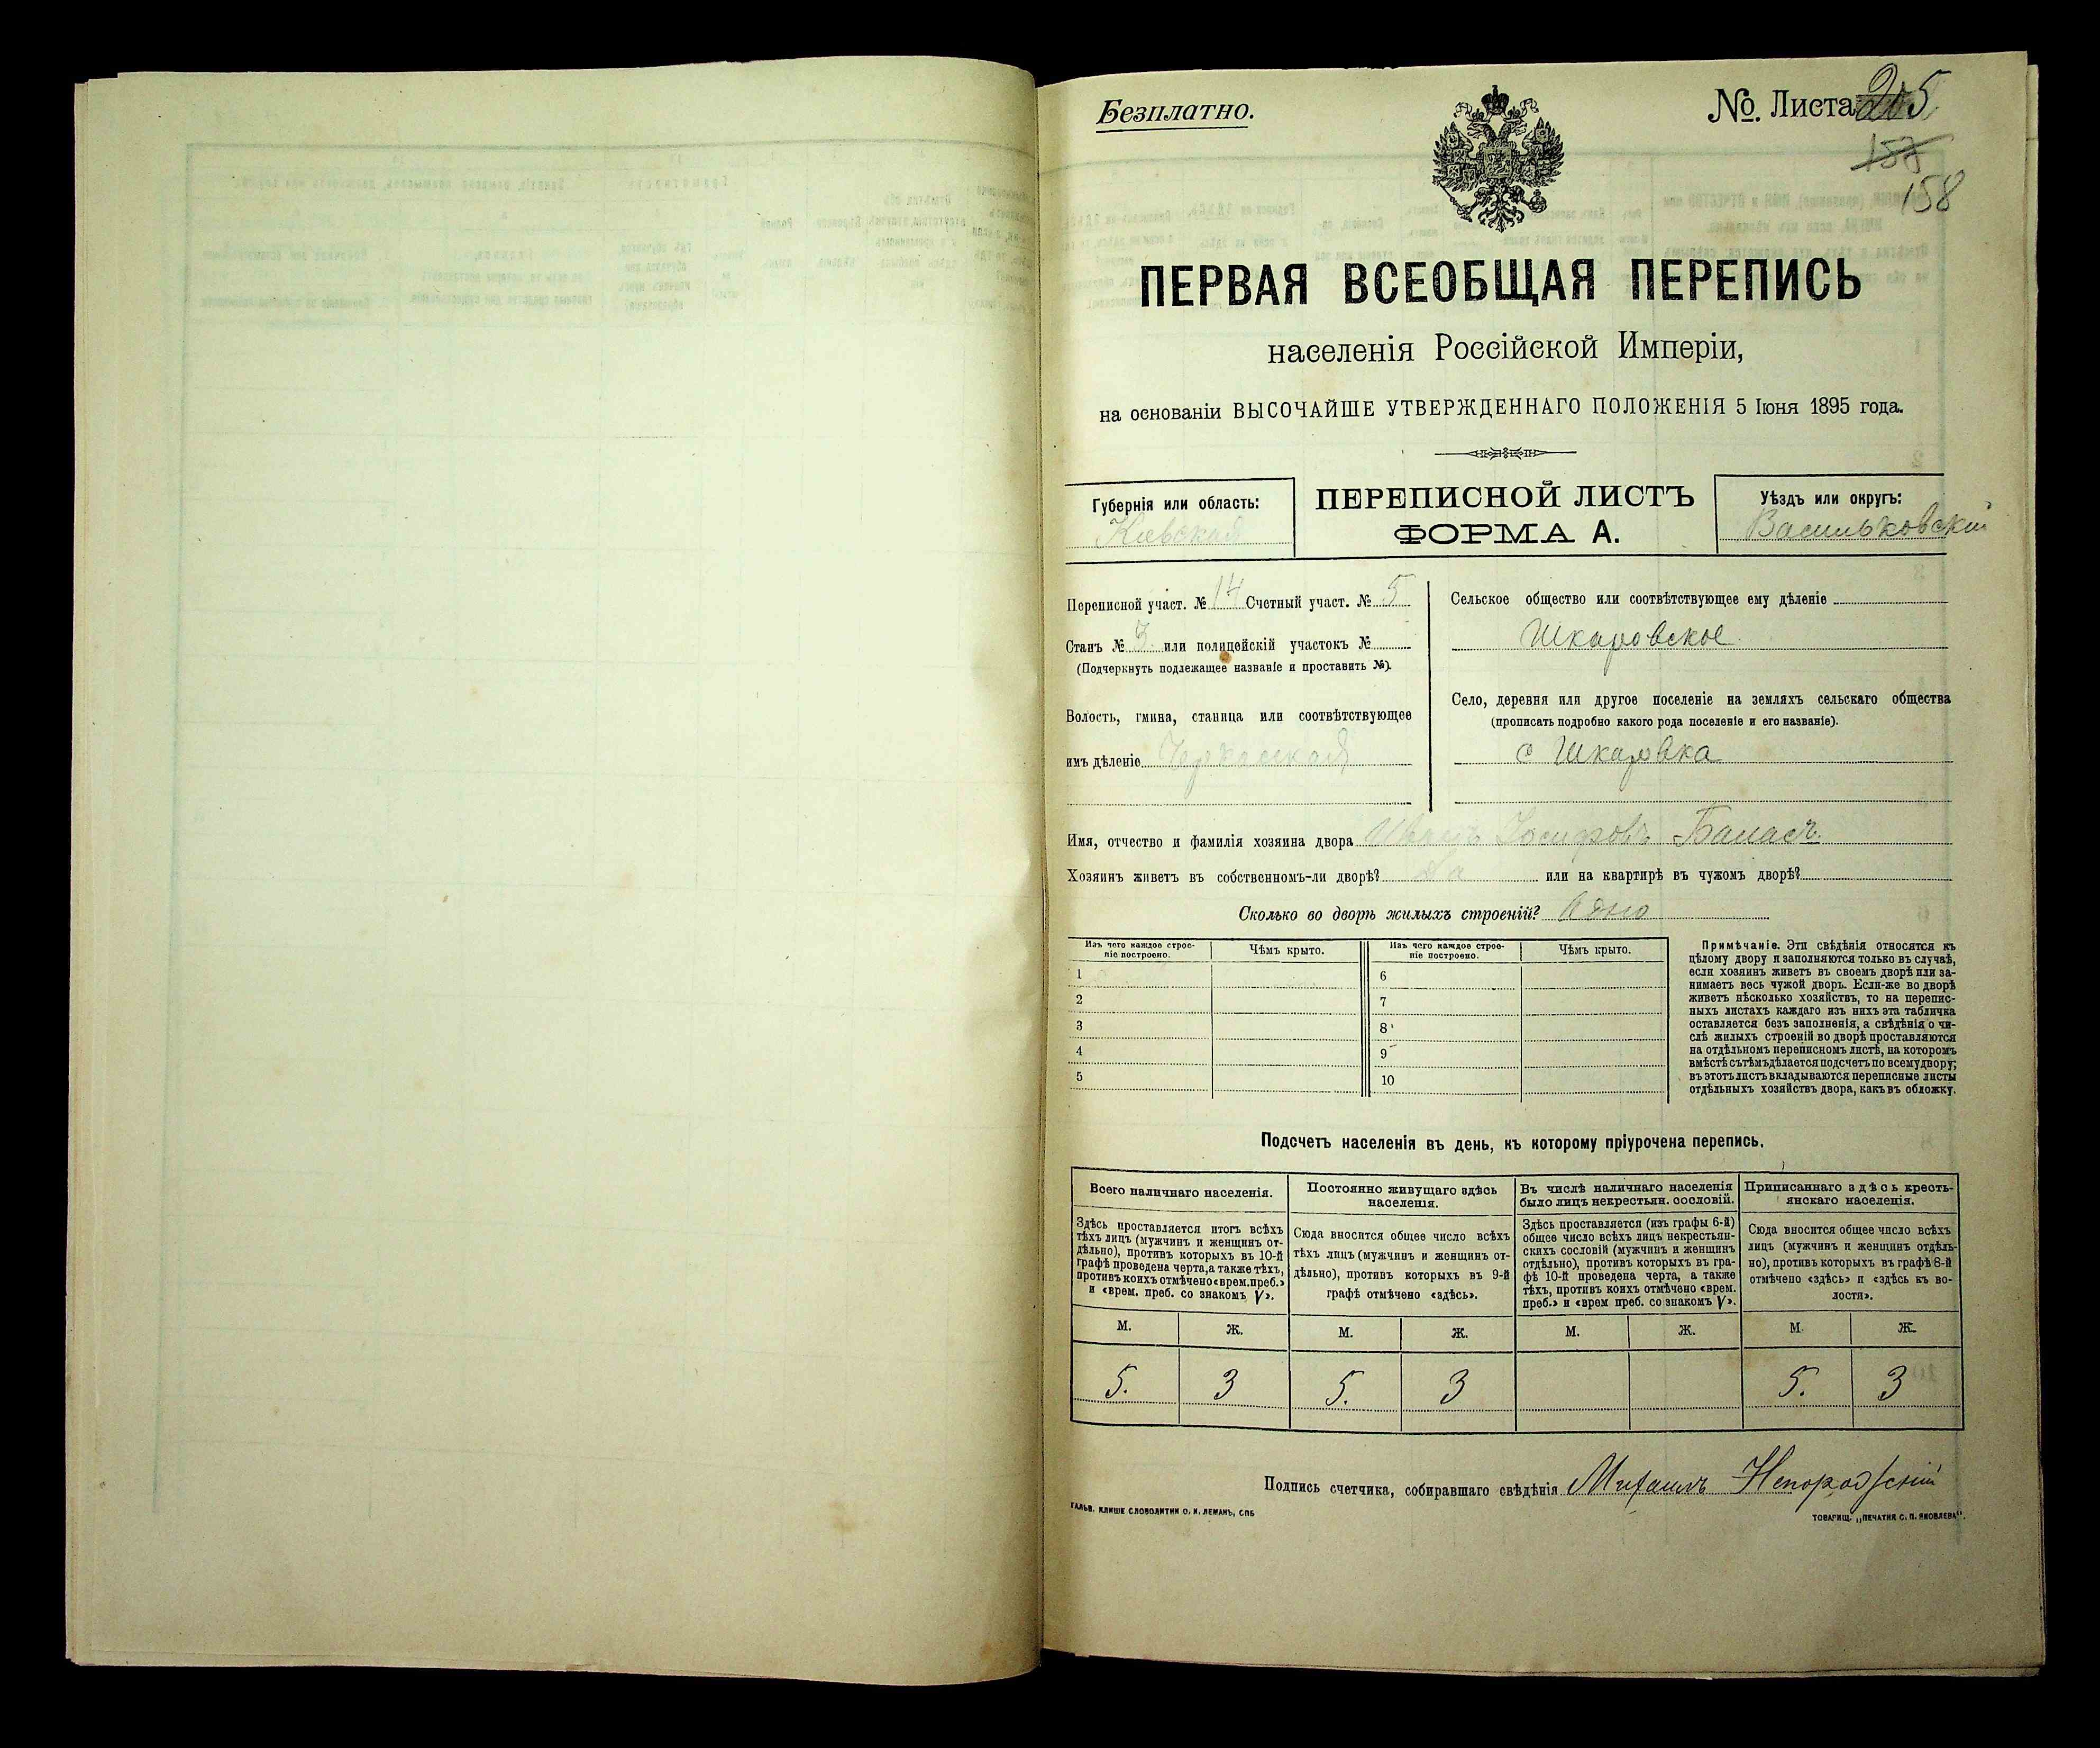 Безплатно.
№ Листа 205
157
158
ПЕРВАЯ ВСЕОБЩАЯ ПЕРЕПИСЬ
населенія Россійской Имперіи,
на основаніи ВЫСОЧАЙШЕ УТВЕРЖДЕННАГО ПОЛОЖЕНІЯ 5 Іюня 1895 года.
Губернія или область:
Кіевская
ПЕРЕПИСНОЙ ЛИСТЪ
ФОРМА А.
Уѣздъ или округъ:
Васильковскій
Переписной участ. № 14 Счетный участ. № 5
Станъ № 3. или полицейскій участокъ №
(Подчеркнуть подлежащее названіе и проставить №).
Волость, гмина, станица или соотвѣтствующее
имъ дѣленіе Черкасская
Сельское общество или соотвѣтствующее ему дѣленіе
Шкаровское
Село, деревня или другое поселеніе на земляхъ сельскаго общества
(прописать подробно какого рода поселеніе и его названіе).
с Шкаровка
Имя, отчество и фамилія хозяина двора Иванъ Іосифовъ Банасъ
Хозяинъ живетъ въ собственномъ-ли дворѣ? Да или на квартирѣ въ чужомъ дворѣ?
Сколько во дворѣ жилыхъ строеній? Одно
Изъ чего каждое строе-
ніе построено.
Чѣмъ крыто.
Изъ чего каждое строе-
ніе построено.
Чѣмъ крыто.
1
6
2
7
3
8
4
9
5
10
Примѣчаніе. Эти свѣдѣнія относятся къ
цѣлому двору и заполняются только въ случаѣ,
если хозяинъ живетъ въ своемъ дворѣ или за-
нимаетъ весь чужой дворъ. Если-же во дворѣ
живетъ нѣсколько хозяйствъ, то на перепис-
ныхъ листахъ каждаго изъ нихъ эта табличка
оставляется безъ заполненія, а свѣдѣнія о чи-
слѣ жилыхъ строеній во дворѣ проставляются
на отдѣльномъ переписномъ листѣ, на которомъ
вмѣстѣ съ тѣмъ дѣлается подсчетъ по всему двору;
въ этотъ листъ вкладываются переписные листы
отдѣльныхъ хозяйствъ двора, какъ въ обложку.
Подсчетъ населенія въ день, къ которому пріурочена перепись.
Всего наличнаго населенія.
Здѣсь проставляется итогъ всѣхъ
тѣхъ лицъ (мужчинъ и женщинъ от-
дѣльно), противъ которыхъ въ 10-й
графѣ проведена черта, а также тѣхъ,
противъ коихъ отмѣчено «врем. преб.»
и «врем. преб. со знакомъ V».
Постоянно живущаго здѣсь
населенія.
Сюда вносится общее число всѣхъ
тѣхъ лицъ (мужчинъ и женщинъ от-
дѣльно), противъ которыхъ въ 9-й
графѣ отмѣчено «здѣсь».
Въ числѣ наличнаго населенія
было лицъ некрестьян. сословій.
Здѣсь проставляется (изъ графы 6-й)
общее число всѣхъ лицъ некрестьян-
скихъ сословій (мужчинъ и женщинъ
отдѣльно), противъ которыхъ въ гра-
фѣ 10-й проведена черта, а также
тѣхъ, противъ коихъ отмѣчено «врем.
преб.» и «врем преб. со знакомъ V».
Приписаннаго здѣсь кресть-
янскаго населенія.
Сюда вносится общее число всѣхъ
лицъ (мужчинъ и женщинъ отдѣль-
но), противъ которыхъ въ графѣ 8-й
отмѣчено «здѣсь» и «здѣсь къ во-
лости».
М. Ж. М. Ж. М. Ж. М. Ж.
5. 3 5. 3 5. 3
Подпись счетчика, собиравшаго свѣдѣнія Михаилъ
ГАЛЬВ. КЛИШЕ СЛОВОЛИТНИ О. И. ЛЕМАНЪ, СПБ
ТОВАРИЩ. „ПЕЧАТНЯ С. П. ЯКОВЛЕВА".